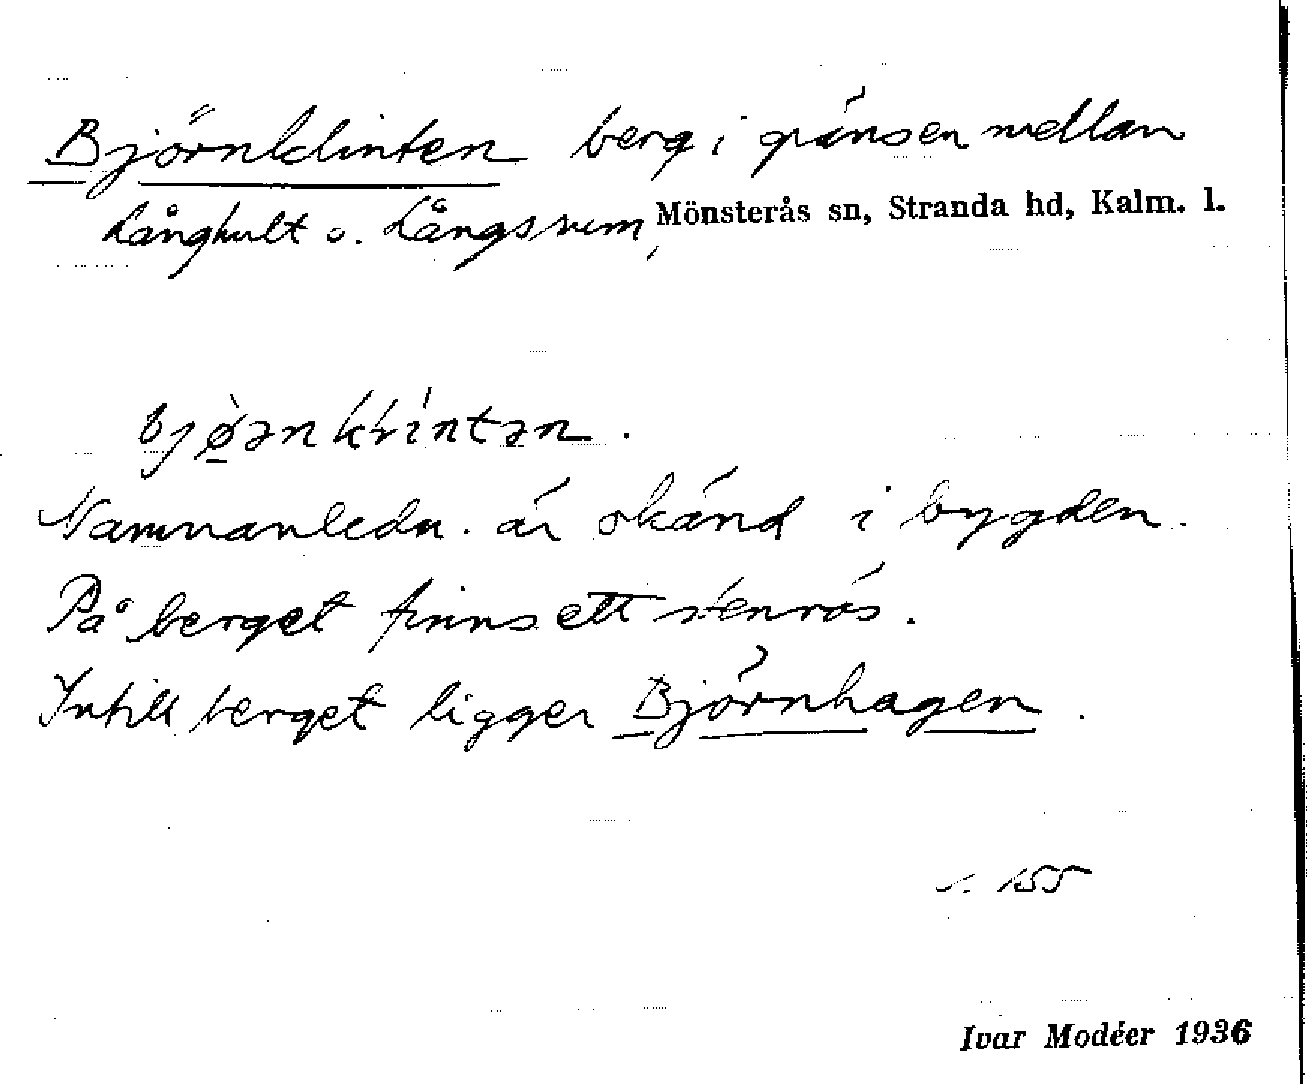 Björnklinten berg i gränsen mellan
Långhult o. Långsrum, Mönsterås sn, Stranda hd, Kalm. l.
Namnanledn. är okänd i bygden.
På berget finns ett stenrös.
Intill berget ligger Björnhagen.
s. 155
Ivar Modéer 1936